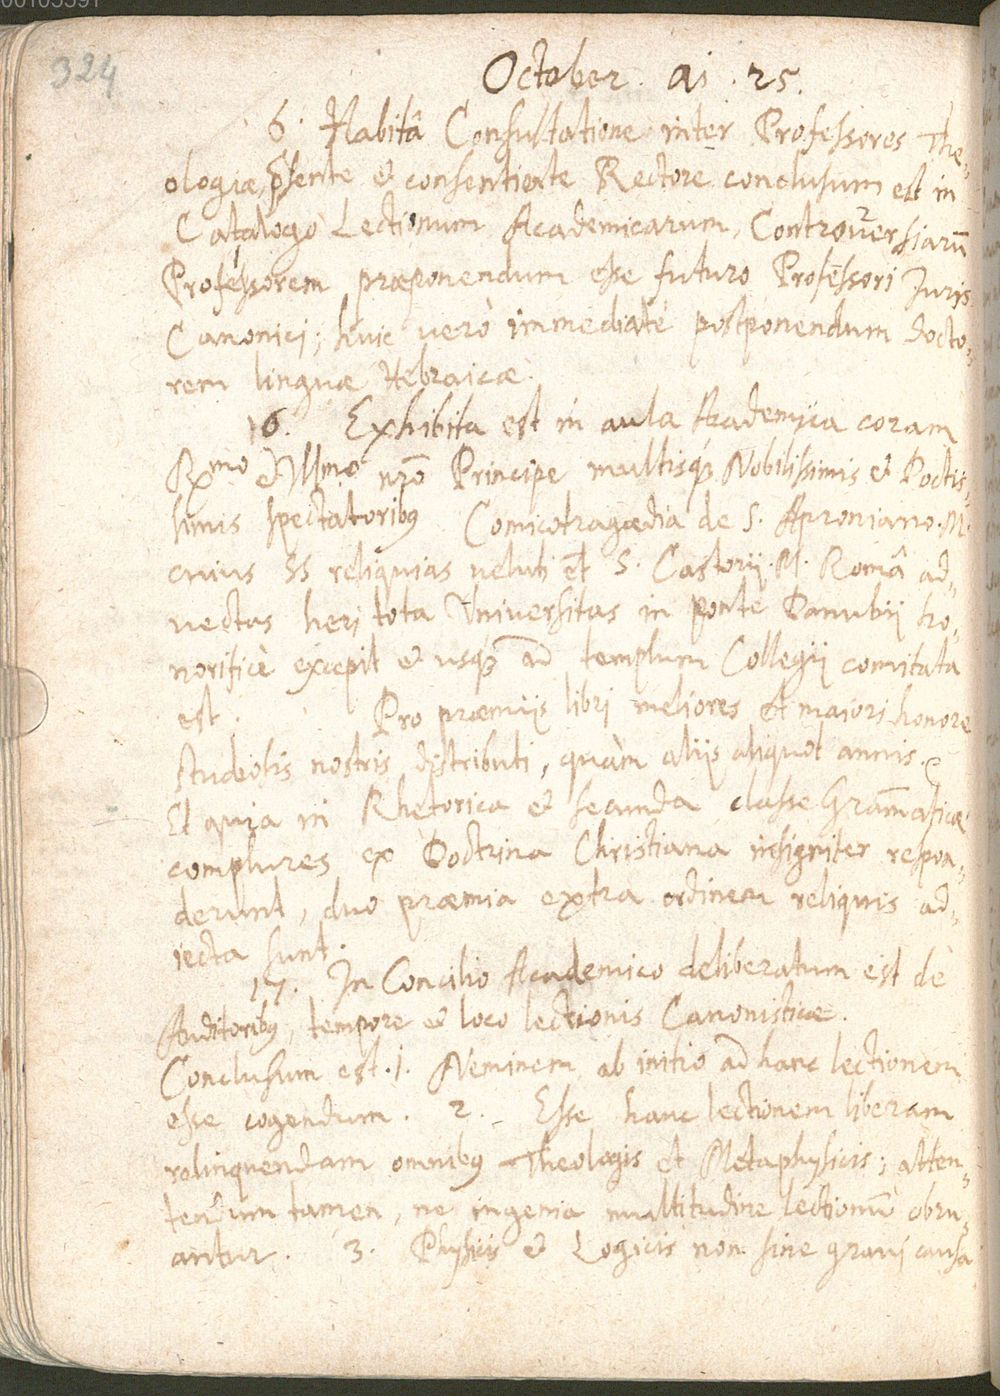 00105591
324
October. ai. 25.
6. Habitâ Consultatione inter Professores The-
ologiæ, p̃sente & consentiente Rectore conclusum est in
Catalogo Lectionum Academicarum, Controversiarũ
Professorem præponendum esse futuro Professori Juris
Canonici; huic verò immediatè postponendum docto-
rem linguæ Hebraicæ.
16. Exhibita est in aula Academica coram
Rmo & Illmo nr̃o Principe multisq; Nobilissimis & Doctis-
simis spectatoribus Comicotragædia de S. Aproniano. M.
cuius SS reliquias veluti et S. Castorij. M. Româ ad-
vectas heri tota Universitas in ponte Danubij ho-
norificè excepit & usq; ad templum Collegij comitata
est. Pro præmijs libri meliores et maiori honore
studiosis nostris distributi, quàm alijs aliquot annis.
Et quia in Rhetorica & secunda classe Gram̃aticæ
complures ex Doctrina Christiana insigniter respon-
derunt, duo præmia extra ordinem reliquis ad-
iecta sunt.
17. In Concilio Academico deliberatum est de
Auditoribus, tempore & loco lectionis Canonisticæ.
Conclusum est. 1. Neminem ab initio ad hanc lectionem
esse cogendum. 2. Esse hanc lectionem liberam
relinquendam omnibus Theologis et Metaphysicis; atten-
tendum tamen, ne ingenia multitudine lectionũ obru-
antur. 3. Physicis & Logicis non sine gravi causa